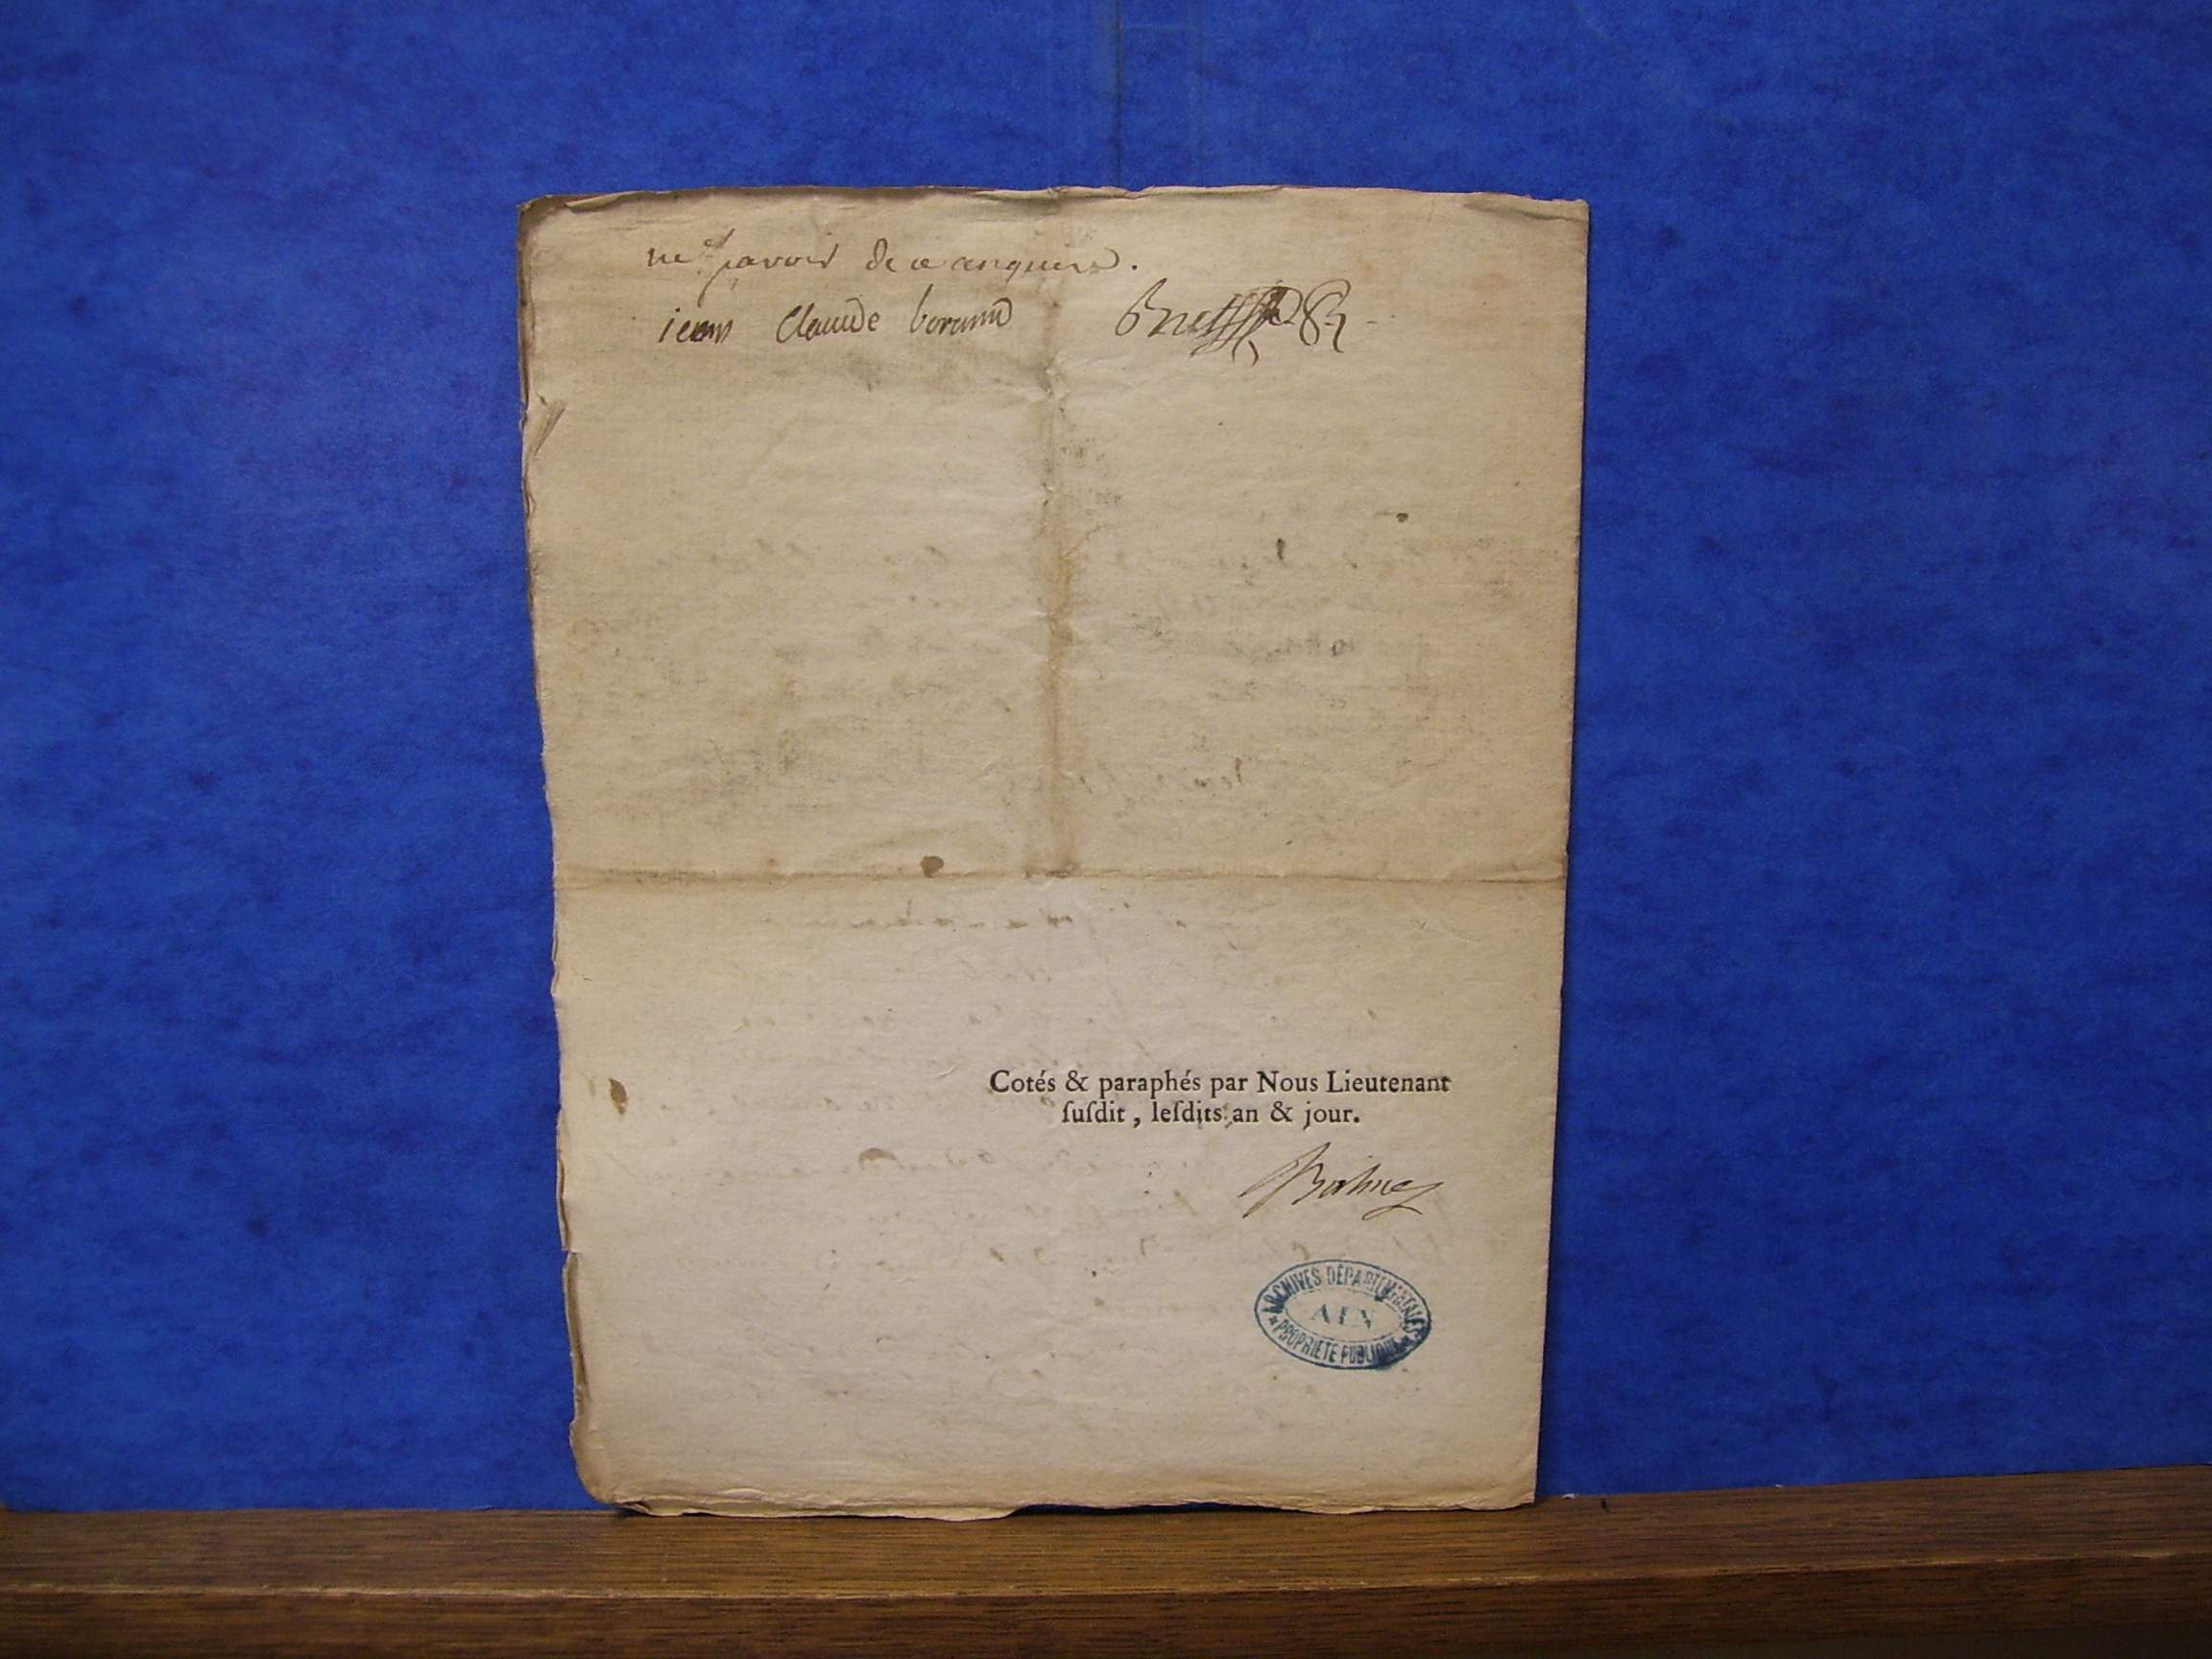 ne savoir de ce enquis.
jean Claude borand
Cotés & paraphés par Nous Lieutenant
ſuſdit, leſdits an & jour.
ARCHIVES DÉPARTEMENTALES
AIN
PROPRIÉTÉ PUBLIQUE